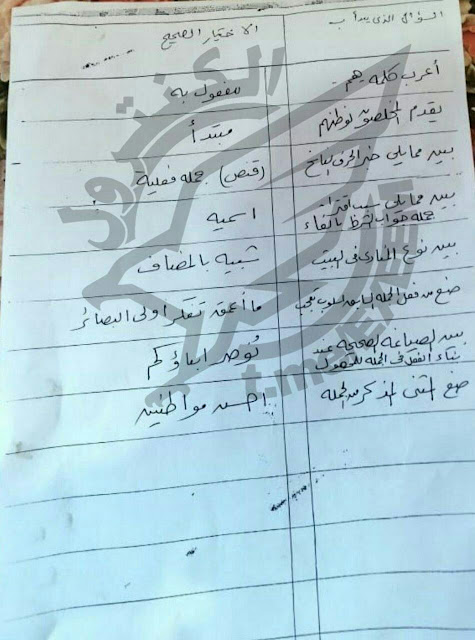 السؤال الذي يبدأ ب
الاختيار الصحيح
أعرب كلمة هم ..
مفعول به
يقدم المخلصون لوطنهم
مبتدأ
بين مما يلي خبر الحرف الناسخ
(قنص) جملة فعلية
بين مما يلي سبب اقتران
جملة جواب الشرط بالفاء
اسمية
بين نوع المنادى في البيت
شبيه بالمضاف
صغ من فعل الجملة السابعة اسلوب تعجب
ما أعمق تفكر أولى البصائر
بين الصياغة الصحيحة عند
بناء الفعل في الجملة للمجهول
أبناؤكم
صغ المثنى المذكر من الجملة
أحسن مواطنين
الكنترول